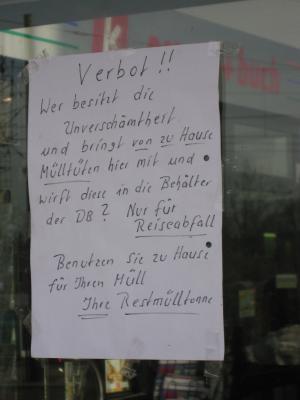 Verbot!!
Wer besitzt die
Unverschämtheit
und bringt von zu Hause
Mülltüten hier mit und
wirft diese in die Behälter
der DB? Nur für
Reiseabfall
Benutzen Sie zu Hause
für Ihren Müll
Ihre Restmülltonne
buch